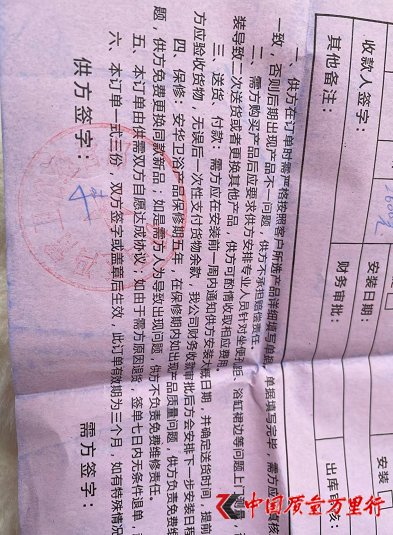 收款人签字：
其他备注：
安装日期：
财务审批：
安装
出库审核：
一、供方在订单时需严格按照客户所选产品详细填写单据，单据填写完毕，需方应
核
一致，否则后期出现产品不一问题，供方不承担赔偿责任。
二、需方购买产品后应要求供方安排专业人员针对坐便孔距、浴缸裙边等问题上门测量，
装导致二次送货或者更换其他产品，供方可酌情收取相应费用。
三、送货 付款：需方应在安装前一周内通知供方安装大概日期，并确定送货时间，提前
方应验收货物，无误后一次性支付货物余款，我公司财务收款审批后方会安排下一步安装日程
四、保修：安华卫浴产品保修期五年，在保修期内如出现产品质量问题，供方负责免费维
题，供方免费更换同款新品；如是需方人为导致出现问题，供方不负责免费维修责任。
五、本订单由供需双方自愿达成协议；如由于需方原因退货，签单七日内无条件退单，
六、本订单一式三份，双方签字或盖章后生效，此订单有效期为三个月，如有特殊情况
供方签字：
需方签字：
中国质量万里行